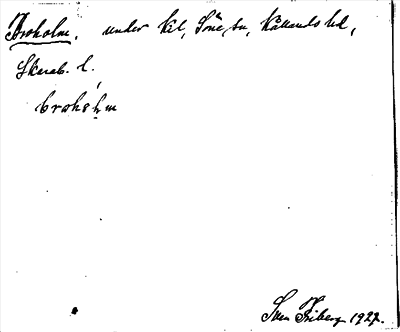 Broholm, under Kil, Söne sn, Kållands hd,
Skarab. l.
Sven Friberg 1927.